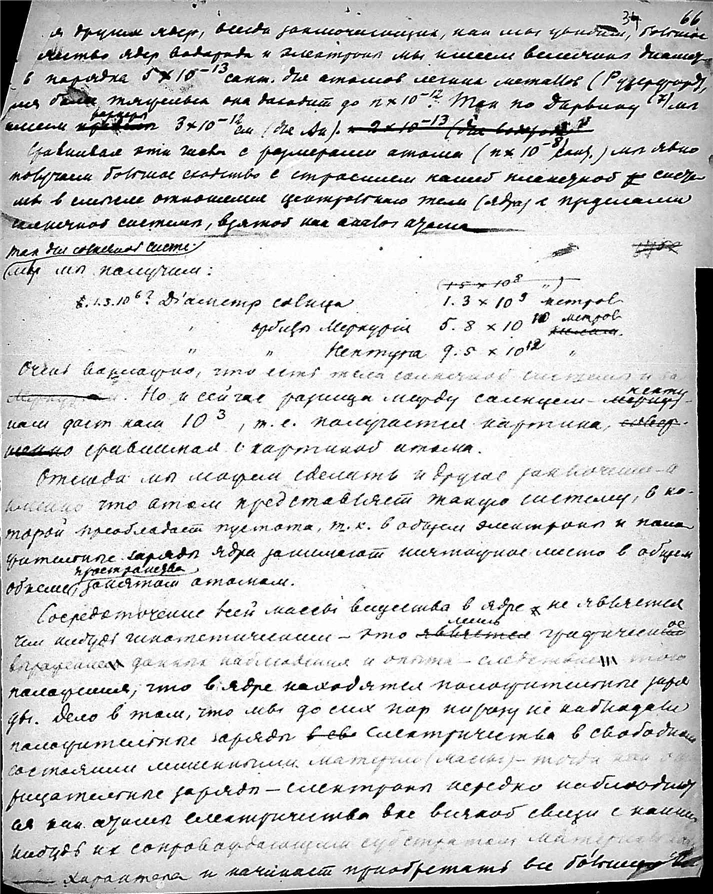 34 66
я других ядер, всегда заключающих, как мы увидим, большое
чество ядер водорода и электроны мы имеем величины диамет
в порядка 5×10⁻¹³ сант. для атомов легких металлов (Рузерфорд),
для более тяжелых она доходит до n×10⁻¹². Так по Дарвину (7) мы
имеем 3×10⁻¹² см (для Au). 2×10⁻¹³ (для водорода)
Сравнивая эти числа с размерами атома (n×10⁻⁸ сант.) мы явно
получаем большое сходство с строением нашей планетной систе
мы в смысле отношения центрального тела (ядра) с пределами
солнечной системы, взятой как атома
так для солнечной систе
мы мы получим:
(1.5 × 10⁸ „)
1.3.10⁶? Діаметр солнца 1.3 × 10⁹ метров
„ орбиты Меркурія 5.8 × 10¹⁰ метров
„ „ Нептуна 9.5 × 10¹² „
Очень возможно, что есть тела солнечной системы и за
Но и сейчас разница между солнцем - непту
ном дает нам 10³, т.е. получается картина,
сравнимая с картиной атома.
Отсюда мы можем сделать и другое заключение - а
именно что атом представляет такую систему, в ко-
торой преобладает пустота, т.к. в общем электроны и поло
жительные заряды ядра занимают ничтожное место в общем
объеме пространства занятом атомом.
Сосредоточение всей массы вещества в ядре не является
чем нибудь гипотетическим - это лишь графическое
выражение данных наблюдения и опыта - следствие того
положения, что в ядре находятся положительные заря
ды. Дело в том, что мы до сих пор нигде не наблюдали
положительные заряды электричества в свободном
состоянии лишенными материи (массы) - тогда как от
рицательные заряды - электроны нередко наблюдают
ся как атомы электричества вне всякой связи с каким
нибудь их сопровождающим субстратом материального
характера и начинает приобретать все большее